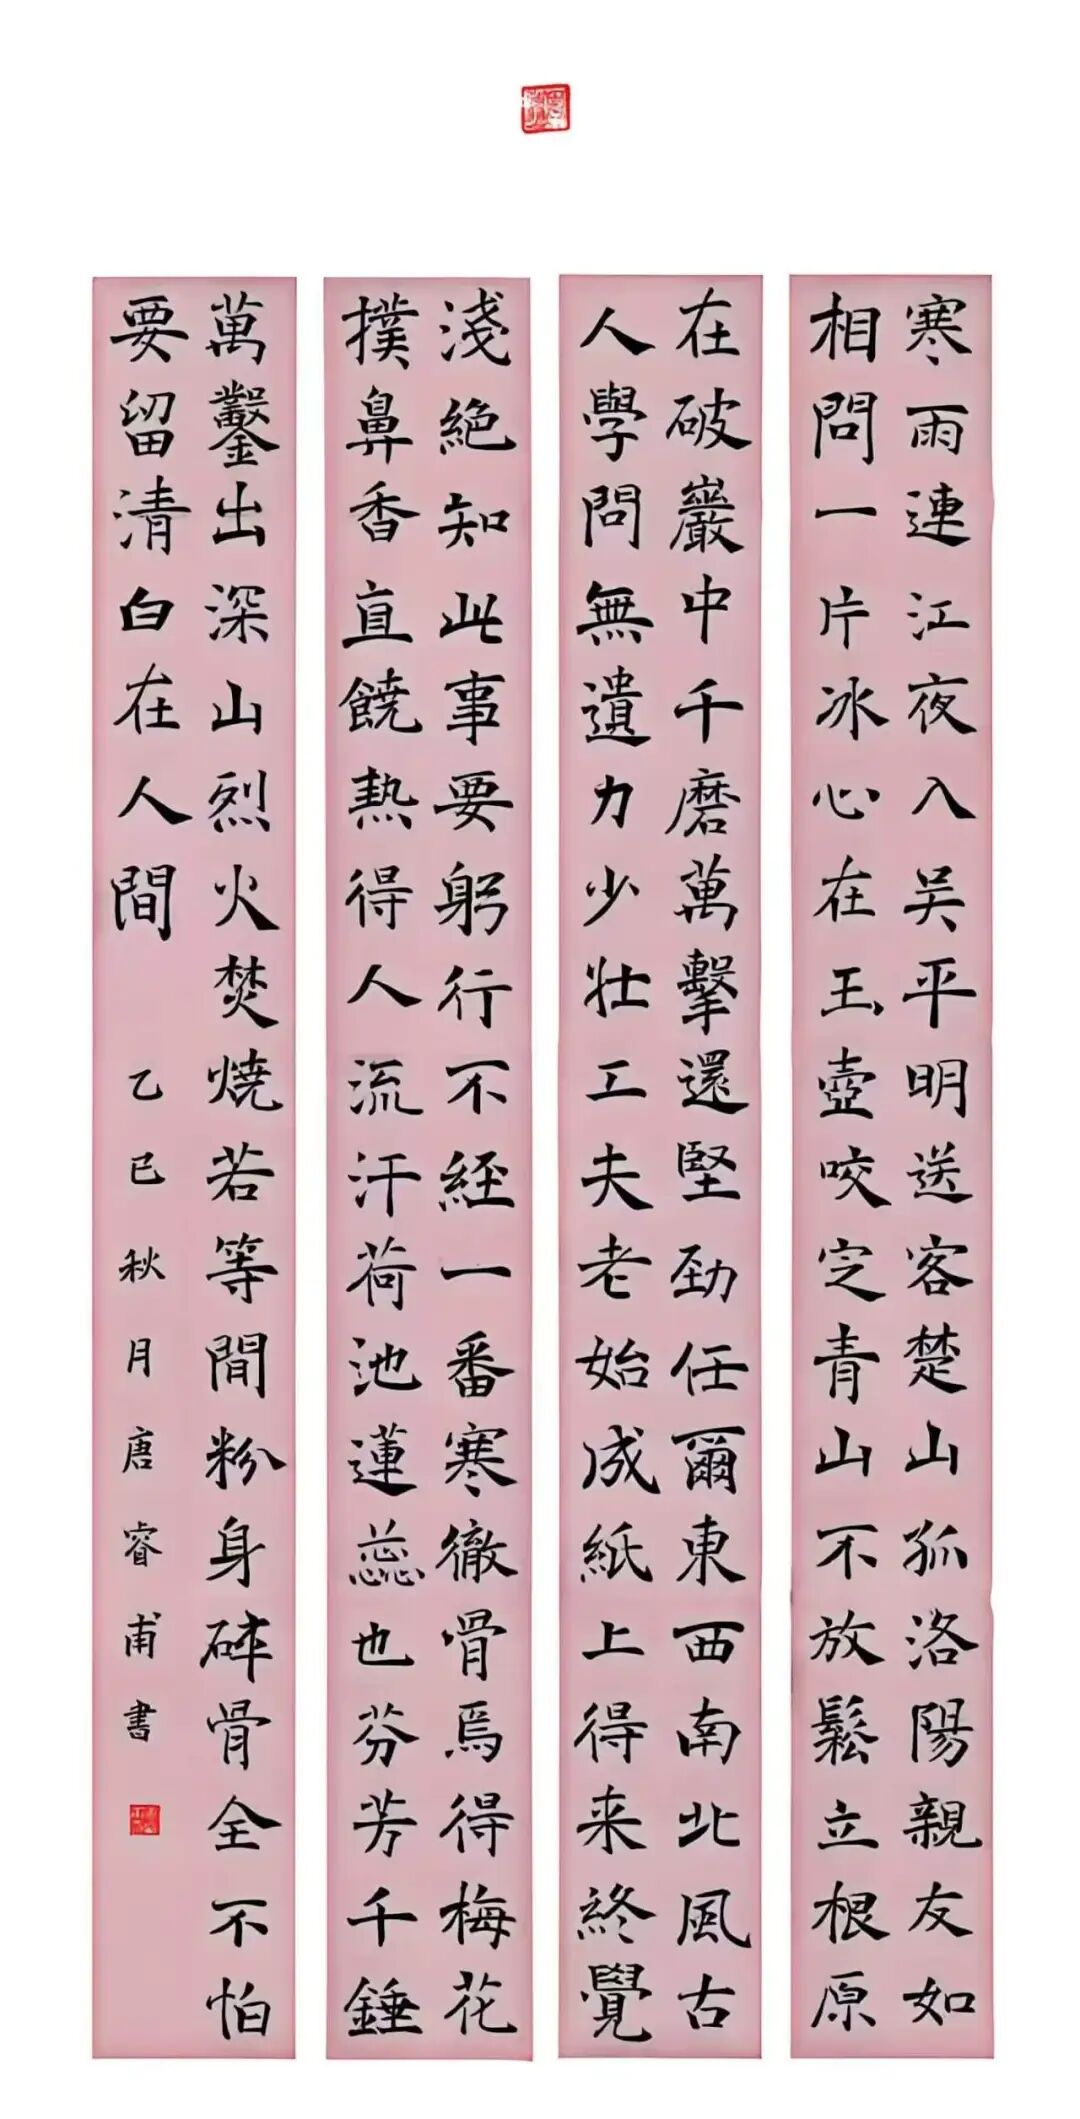 寒雨連江夜入吴平明送客楚山孤洛陽親友如
相問一片冰心在玉壺咬定青山不放鬆立根原
在破巖中千磨萬擊還堅勁任爾東西南北風古
人學問無遺力少壯工夫老始成紙上得来終覺
淺絶知此事要躬行不經一番寒徹骨焉得梅花
撲鼻香直饒熱得人流汗荷池蓮蕊也芬芳千錘
萬鑿出深山烈火焚燒若等閒粉身碎骨全不怕
要留清白在人間
乙巳秋月唐睿甫書